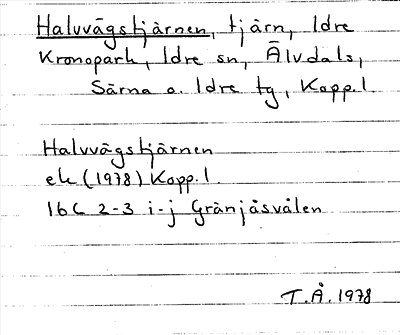 Halvvägstjärnen, tjärn, Idre
Kronopark, Idre sn, Älvdals,
Särna o. Idre tg, Kopp. l.
Halvvägstjärnen
ek (1978) Kopp. l.
16C 2-3 i-j Gränjåsvålen
T.Å. 1978